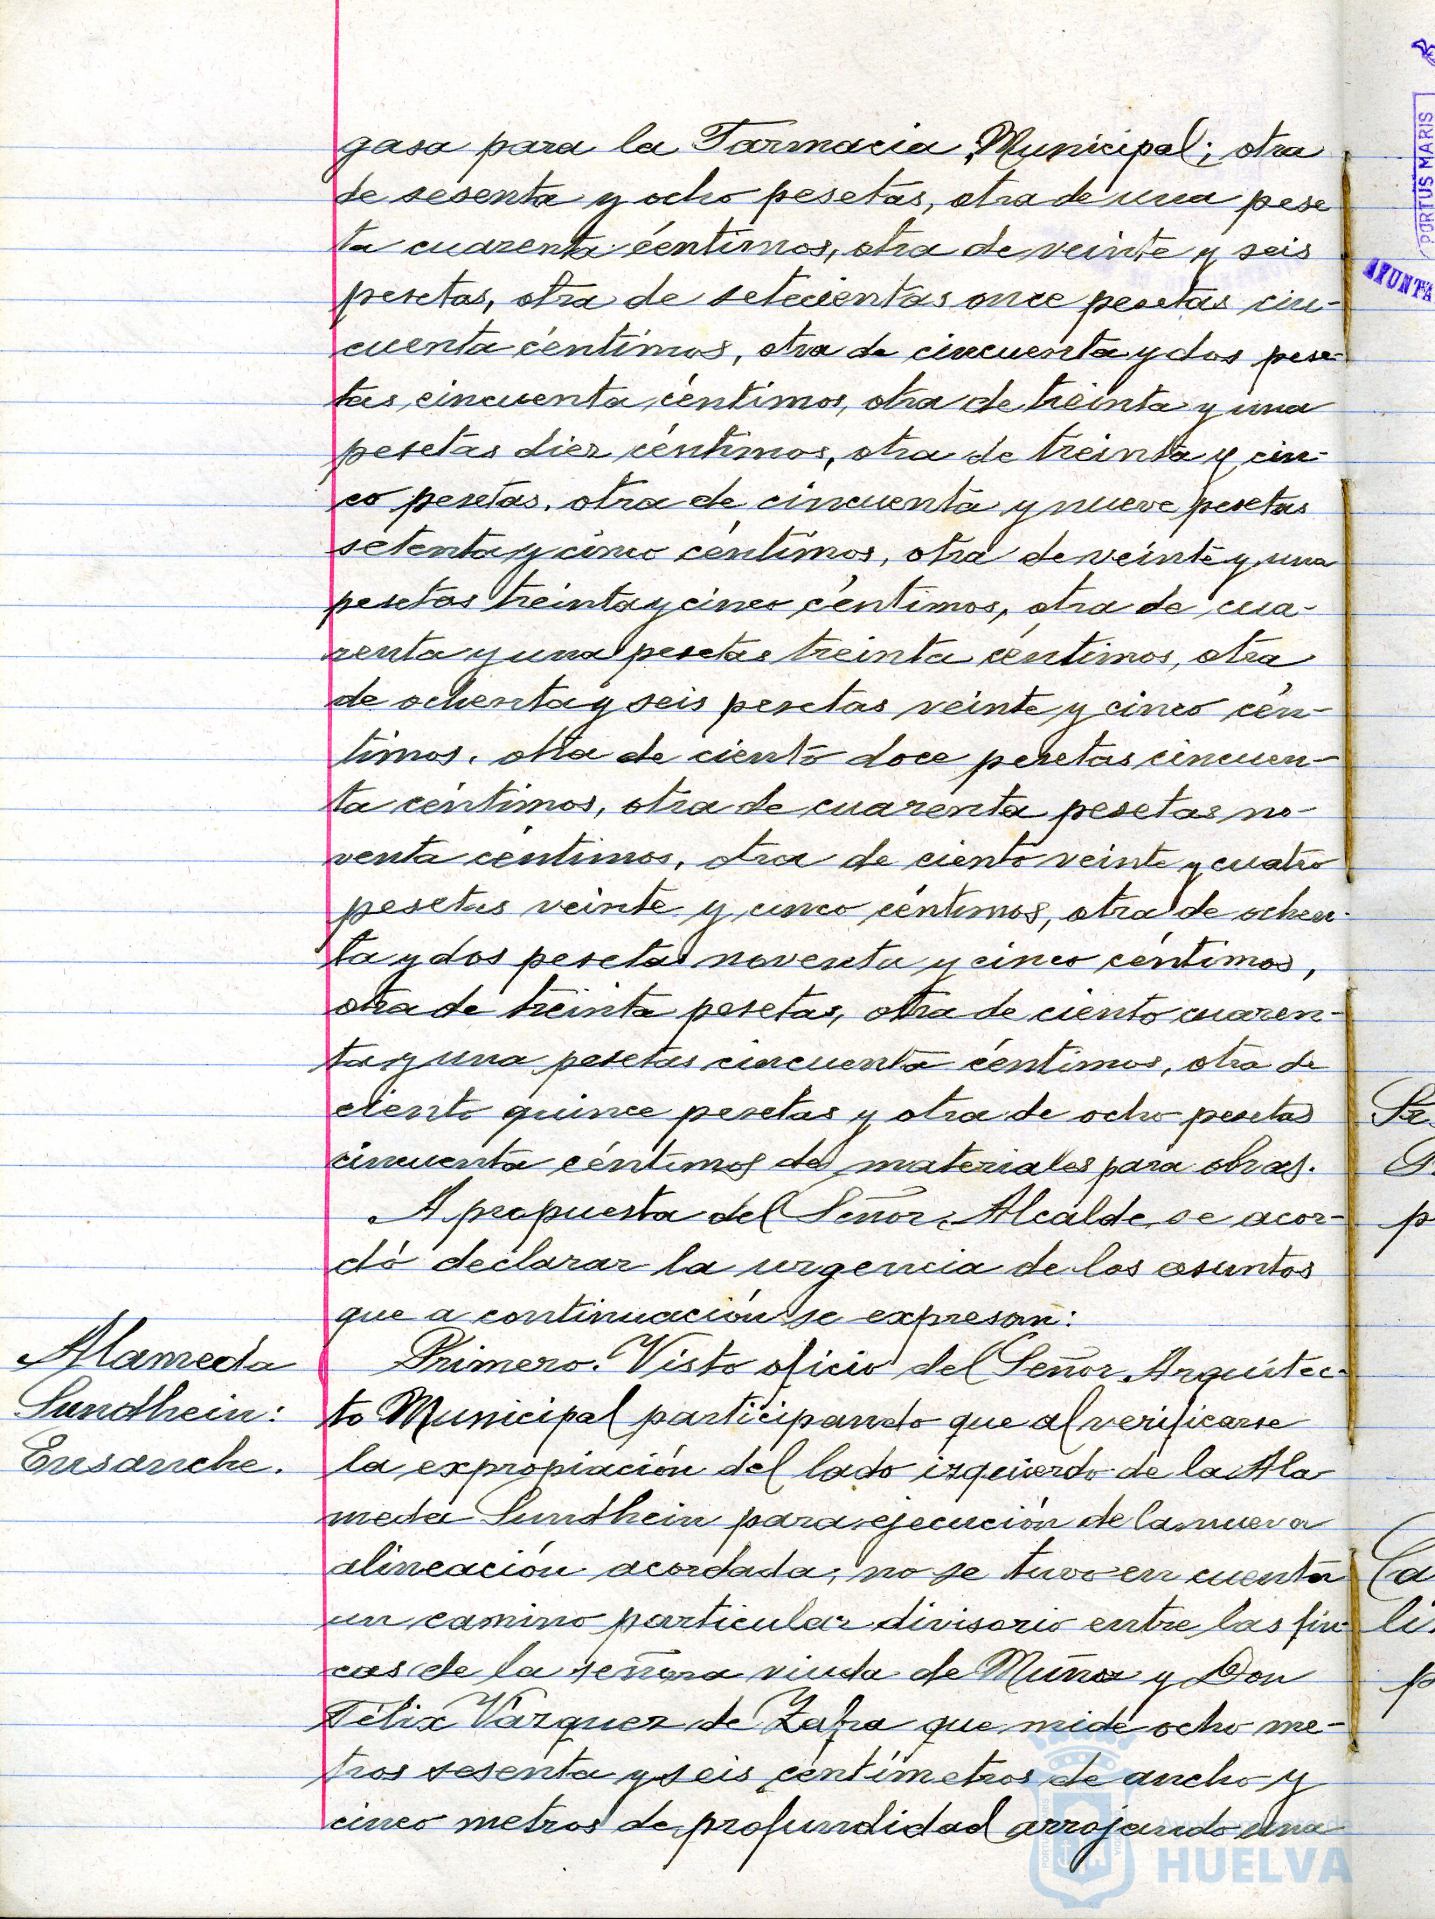 gasa para la Farmacia Municipal; otra
de sesenta y ocho pesetas, otra de una pese
ta cuarenta céntimos, otra de veinte y seis
pesetas, otra de setecientas once pesetas cin-
cuenta céntimos, otra de cincuenta y dos pese-
tas cincuenta céntimos, otra de treinta y una
pesetas diez céntimos, otra de treinta y cin-
co pesetas, otra de cincuenta y nueve pesetas
setenta y cinco céntimos, otra de veinte y una
pesetas treinta y cinco céntimos, otra de cua-
renta y una pesetas treinta céntimos, otra
de ochenta y seis pesetas veinte y cinco cén-
timos, otra de ciento doce pesetas cincuen-
ta céntimos, otra de cuarenta pesetas no-
venta céntimos, otra de ciento veinte y cuatro
pesetas veinte y cinco céntimos, otra de ochen-
ta y dos pesetas noventa y cinco céntimos,
otra de treinta pesetas, otra de ciento cuaren-
ta y una pesetas cincuenta céntimos, otra de
ciento quince pesetas y otra de ocho pesetas
cincuenta céntimos de materiales para obras.
A propuesta del Señor Alcalde, se acor-
dó declarar la urgencia de los asuntos
que a continuación se expresan:
Alameda
Sundhein:
Ensanche.
Primero. Visto oficio del Señor Arquitec-
to Municipal participando que al verificarse
la expropiación del lado izquierdo de la Ala
meda Sundhein para ejecución de la nueva
alineación acordada, no se tuvo en cuenta
un camino particular divisorio entre las fin-
cas de la señora viuda de Muñoz y Don
Félix Vázquez de Zafra que mide ocho me-
tros sesenta y seis centímetros de ancho y
cinco metros de profundidad arrojando una
PORTUS MARIS
AYUNTA
HUELVA